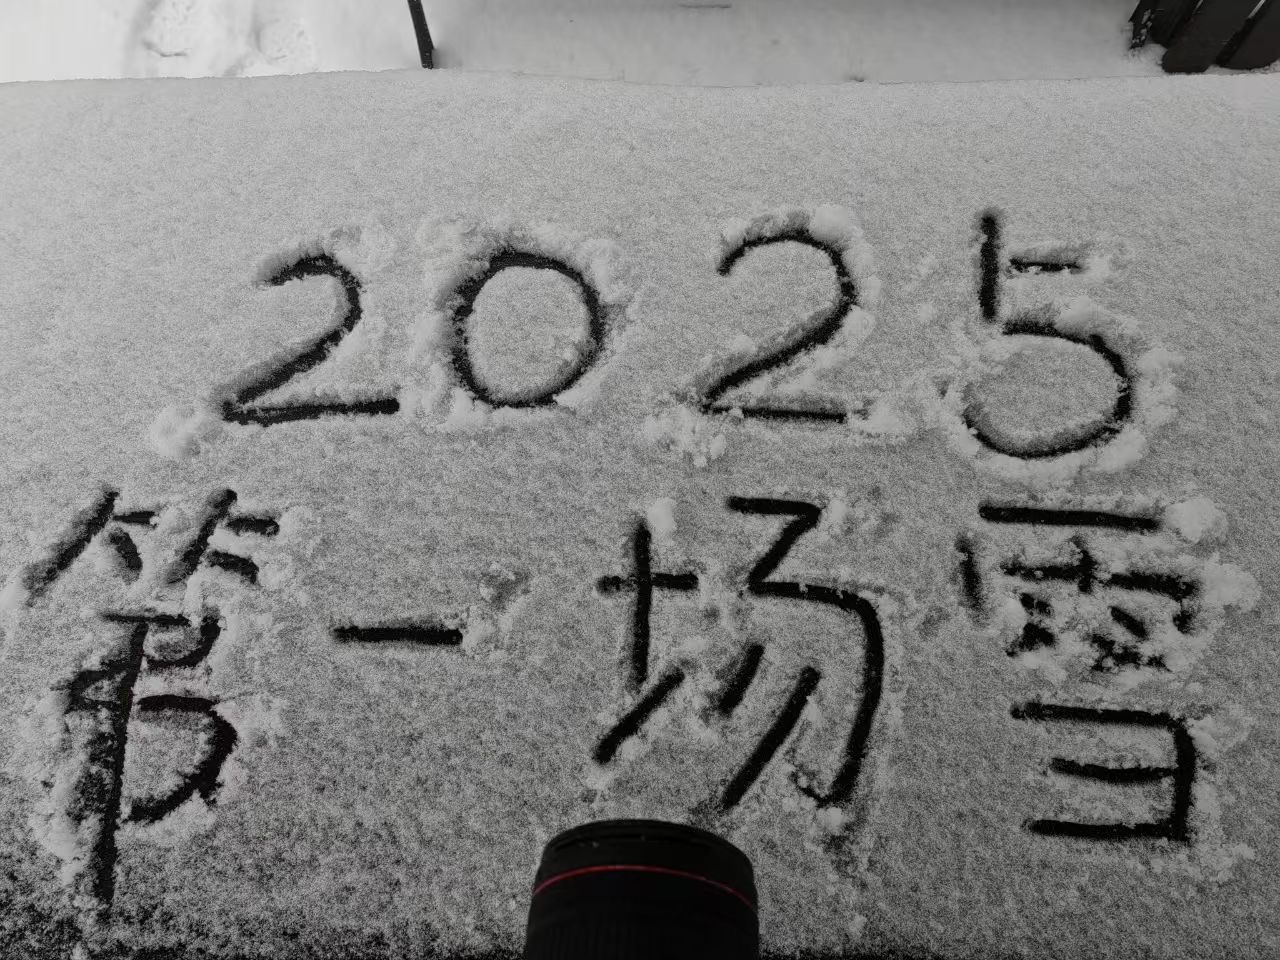 2025
第一场雪